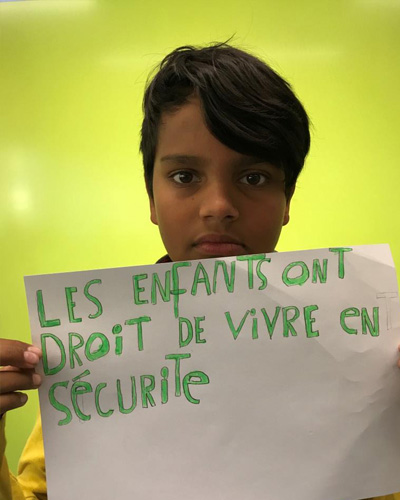 LES ENFANTS ONT
DROIT DE VIVRE EN
SÉCURITE